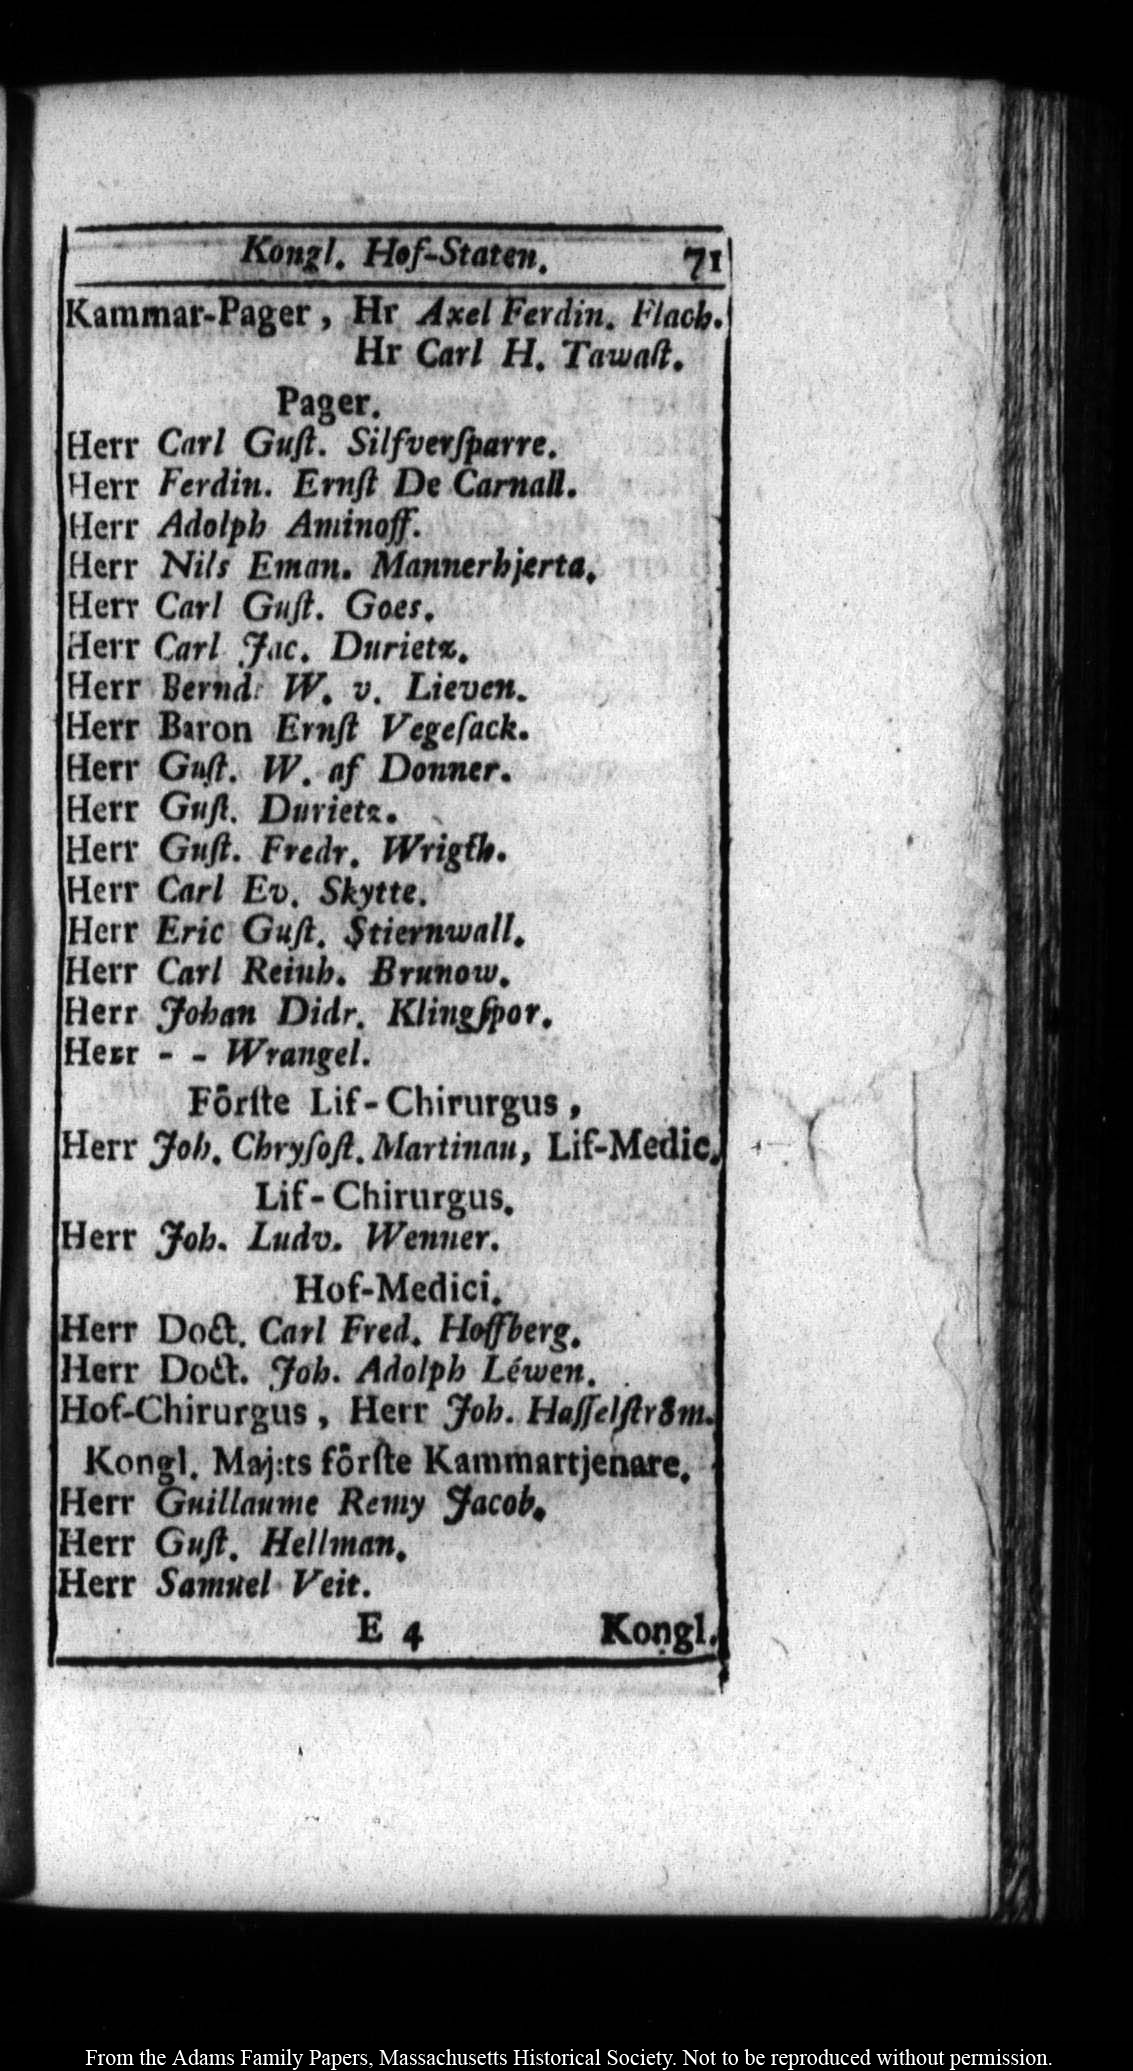 Kongl. Hof-Staten. 71
Kammar-Pager, Hr Axel Ferdin. Flach.
Hr Carl H. Tawaſt.
Pager.
Herr Carl Guſt. Silfverſparre.
Herr Ferdin. Ernſt De Carnall.
Herr Adolph Aminoff.
Herr Nils Eman. Mannerhjerta.
Herr Carl Guſt. Goes.
Herr Carl Jac. Durietz.
Herr Bernd. W. v. Lieven.
Herr Baron Ernſt Vegeſack.
Herr Guſt. W. af Donner.
Herr Guſt. Durietz.
Herr Guſt. Fredr. Wrigth.
Herr Carl Ev. Skytte.
Herr Eric Guſt. Stiernwall.
Herr Carl Reinh. Brunow.
Herr Johan Didr. Klingſpor.
Herr - - Wrangel.
Foͤrſte Lif-Chirurgus,
Herr Joh. Chryſoſt. Martinau, Lif-Medic.
Lif-Chirurgus.
Herr Joh. Ludv. Wenner.
Hof-Medici.
Herr Doct. Carl Fred. Hoffberg.
Herr Doct. Joh. Adolph Léwen.
Hof-Chirurgus, Herr Joh. Haſſelſtroͤm.
Kongl. Maj:ts foͤrſte Kammartjenare.
Herr Guillaume Remy Jacob.
Herr Guſt. Hellman.
Herr Samuel Veit.
E 4 Kongl.
From the Adams Family Papers, Massachusetts Historical Society. Not to be reproduced without permission.